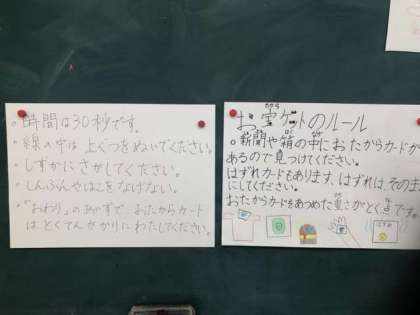 ・時間は30秒です。
・線の中は上ぐつをぬいでください。
・しずかにさがしてください。
・しんぶんやはこをなげない。
・「おわり」のあいずで、おたからカード
はとくてんがかりにわたしてください。
お宝ゲットのルール
たから
。新聞や箱の中におたからカードが
あるので見つけてください。
はずれカードもあります、はずれは、そのまま
にしてください。
おたからカードをあつめた重さがとく点です。